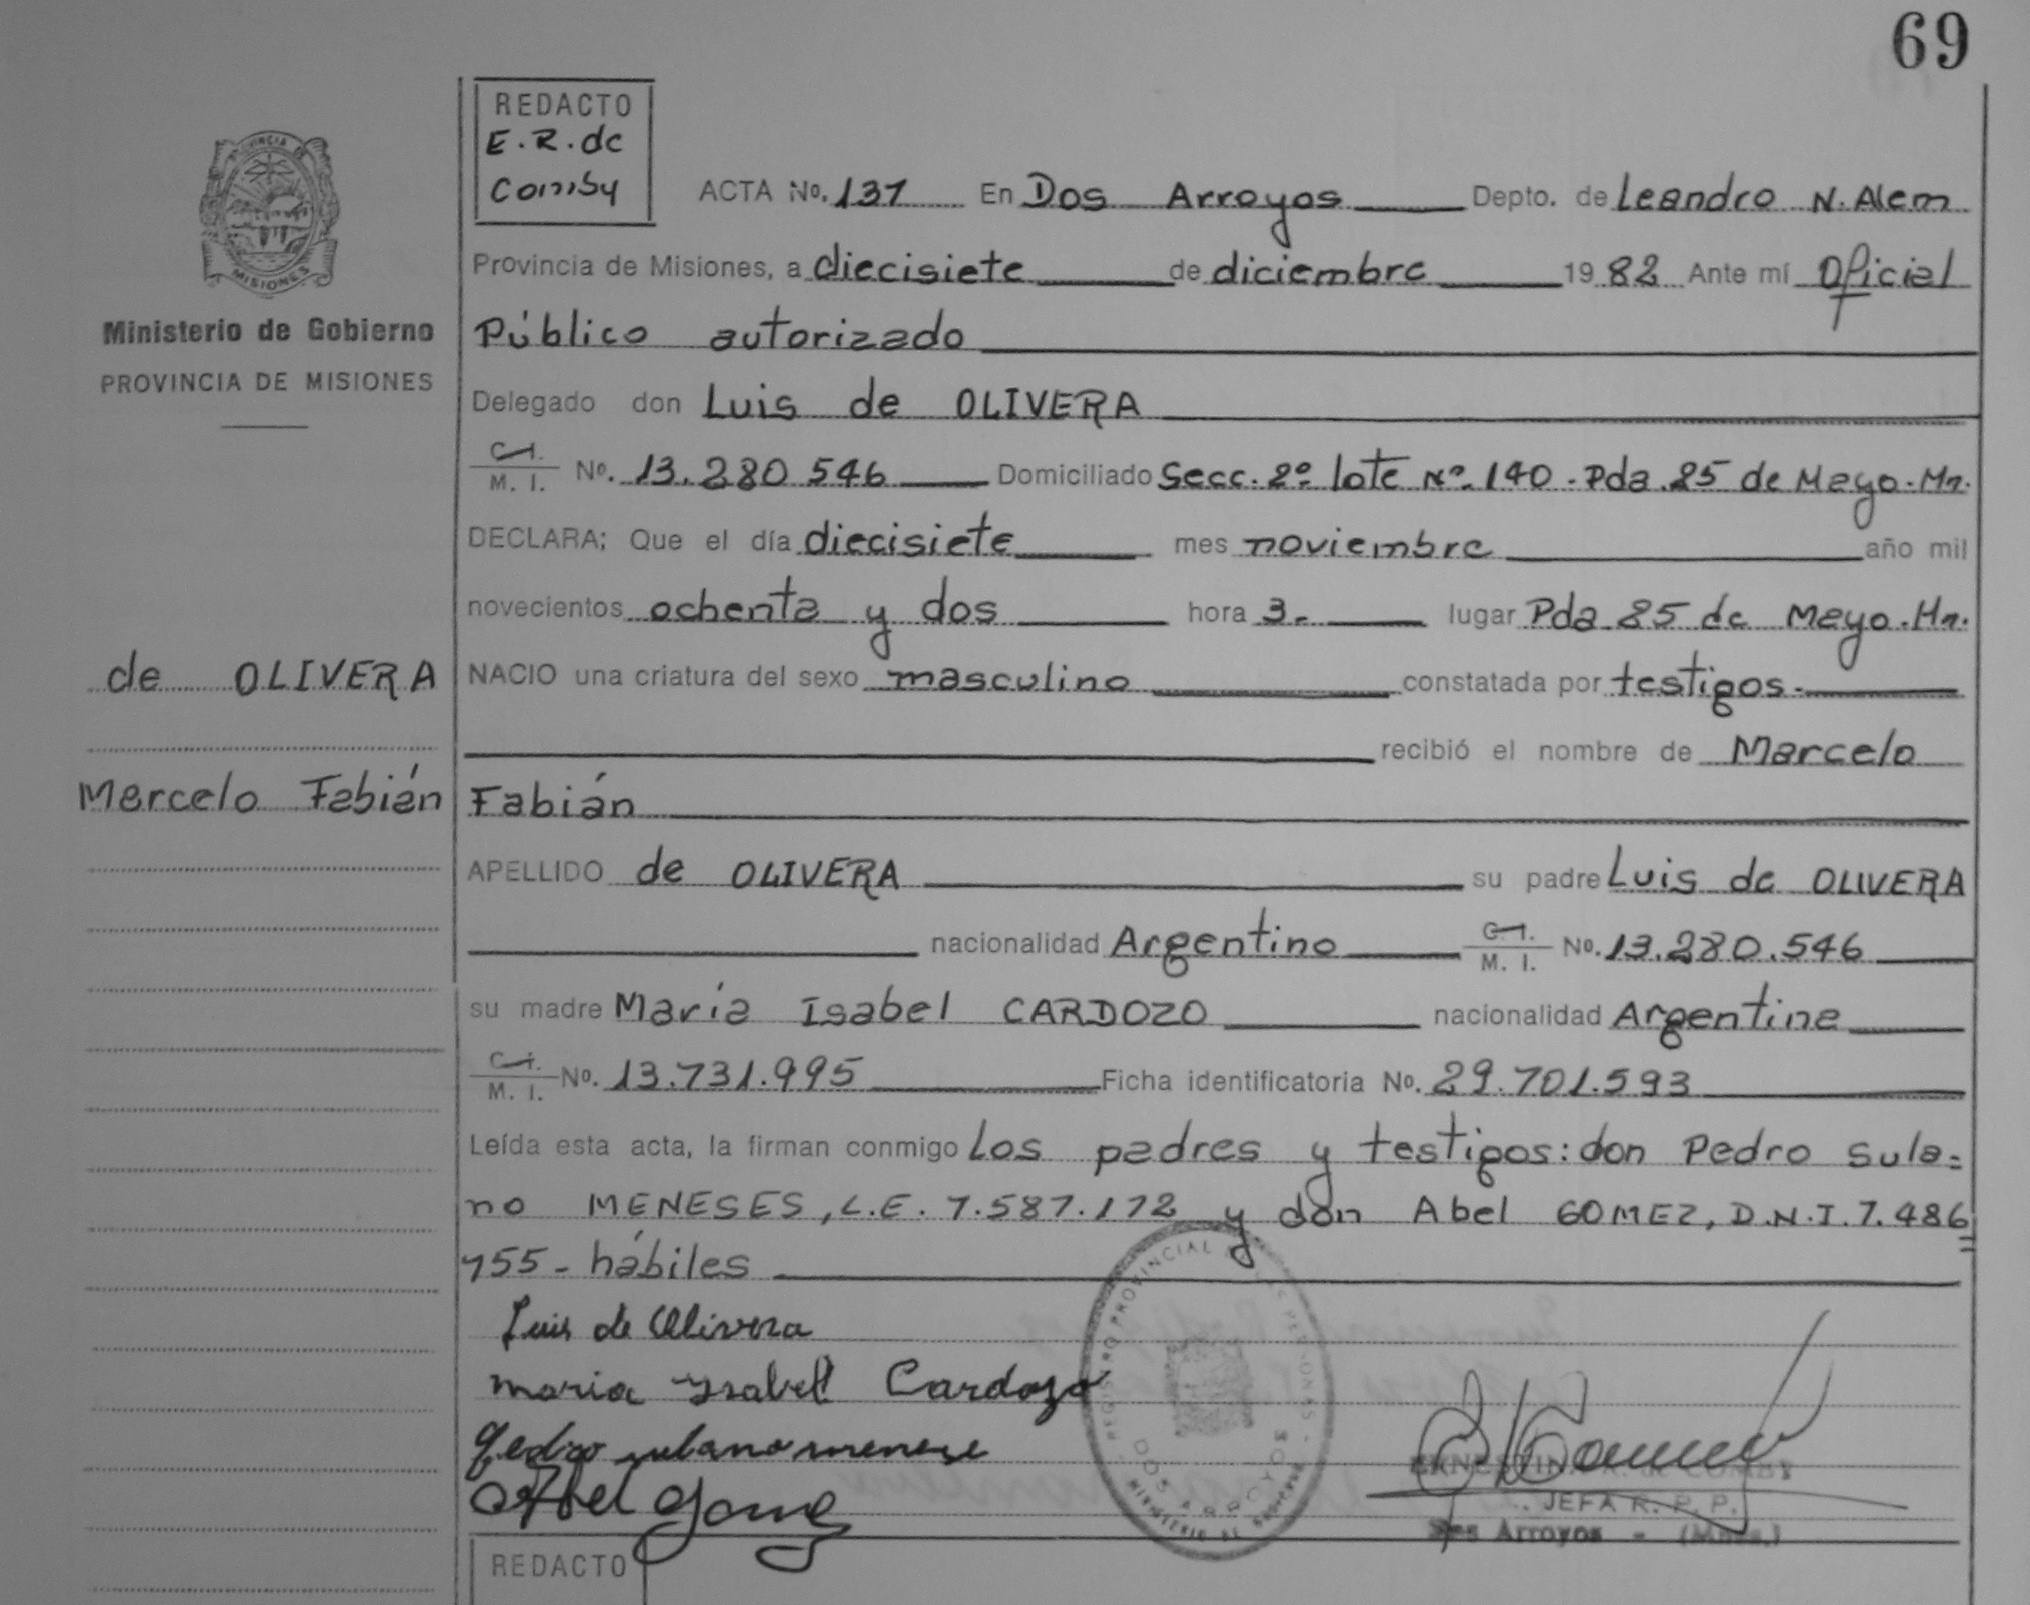 69
REDACTO
E.R.de
Comby
PROVINCIA DE
MISIONES
Ministerio de Gobierno
PROVINCIA DE MISIONES
ACTA No. 137 En Dos Arroyos Depto. de Leandro N. Alem
Provincia de Misiones, a diecisiete de diciembre 1982 Ante mí Oficial
Público autorizado
Delegado don Luis de OLIVERA
C.I. M. I. No. 13.280.546 Domiciliado Secc. 2º lote Nº 140 - Pda. 25 de Mayo. Mn.
DECLARA; Que el día diecisiete mes noviembre año mil
novecientos ochenta y dos hora 3.- lugar Pda 25 de Mayo. Mn.
de OLIVERA
NACIO una criatura del sexo masculino constatada por testigos.
recibió el nombre de Marcelo
Marcelo Fabián
Fabián
APELLIDO de OLIVERA su padre Luis de OLIVERA
nacionalidad Argentino C.I. M. I. No. 13.280.546
su madre María Isabel CARDOZO nacionalidad Argentina
C.I. M. I. No. 13.731.995 Ficha identificatoria No. 29.701.593
Leída esta acta, la firman conmigo Los padres y testigos: don Pedro Sula=
no MENESES, L.E. 7.587.172 y don Abel GOMEZ, D.N.I. 7.486
755 - hábiles
Luis de Olivera
maria ysabel Cardozo
Pedro sulano menese
Abel Gomez
REGISTRO PROVINCIAL DE LAS PERSONAS
DOS ARROYOS
MINISTERIO DE GOBIERNO
ERNESTINA R. de COMBY
JEFA R. P. P.
Dos Arroyos - (Mnes.)
REDACTO